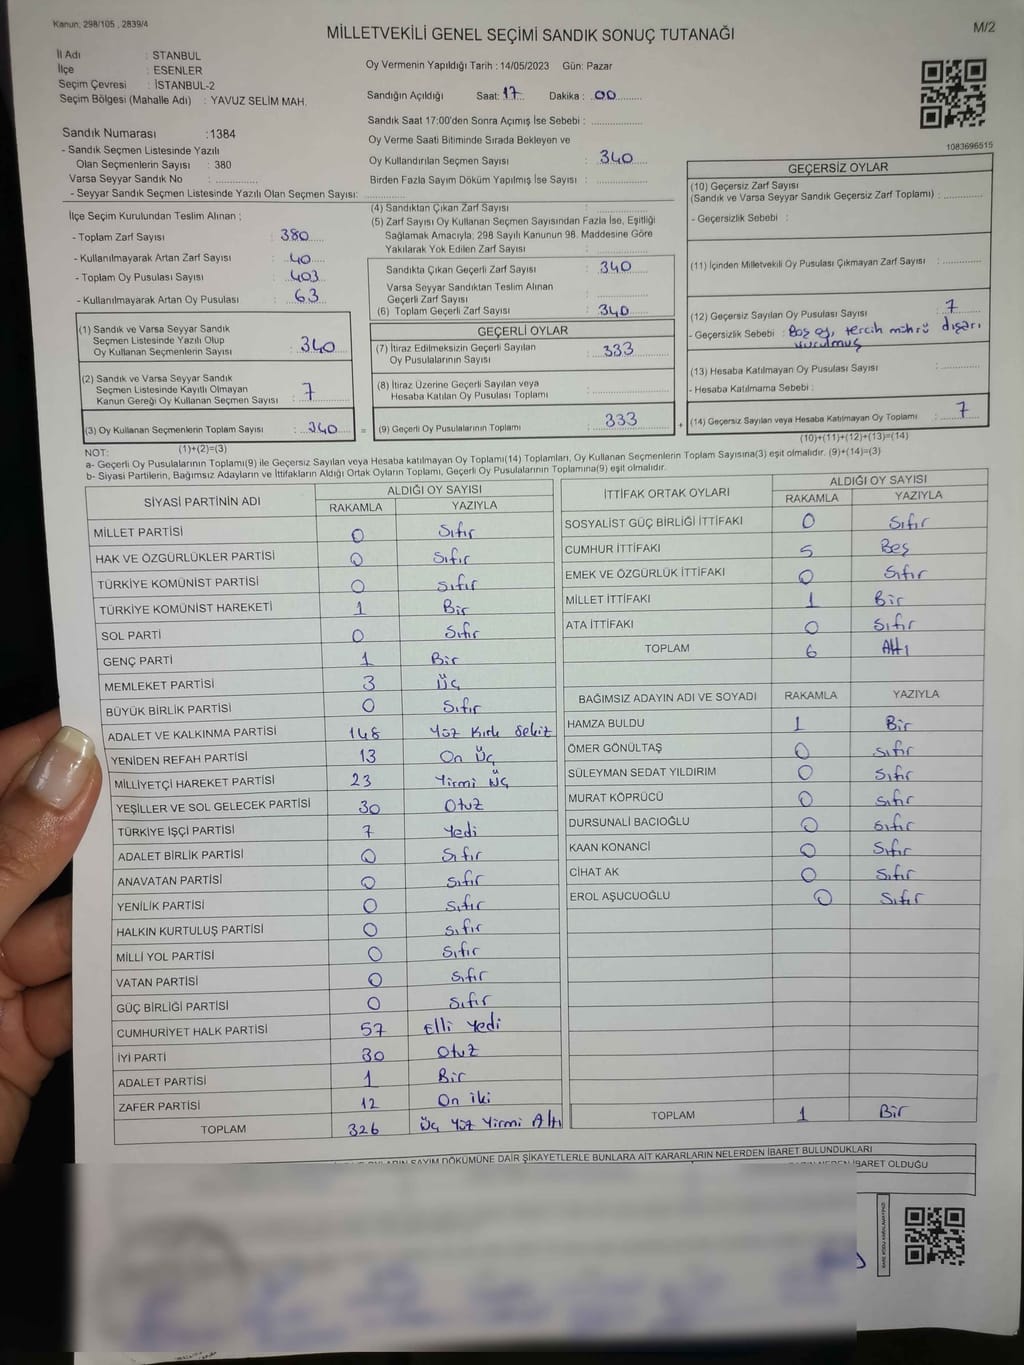 Kanun; 298/105 , 2839/4
MİLLETVEKİLİ GENEL SEÇİMİ SANDIK SONUÇ TUTANAĞI
M/2
İl Adı : STANBUL
İlçe : ESENLER
Seçim Çevresi : İSTANBUL-2
Seçim Bölgesi (Mahalle Adı) : YAVUZ SELİM MAH.
Oy Vermenin Yapıldığı Tarih : 14/05/2023 Gün: Pazar
Sandığın Açıldığı Saat: 17 Dakika : 00
Sandık Saat 17:00'den Sonra Açımış İse Sebebi :
Oy Verme Saati Bitiminde Sırada Bekleyen ve
Oy Kullandırılan Seçmen Sayısı : 340
Birden Fazla Sayım Döküm Yapılmış İse Sayısı :
1083696515
Sandık Numarası : 1384
- Sandık Seçmen Listesinde Yazılı
Olan Seçmenlerin Sayısı : 380
Varsa Seyyar Sandık No :
- Seyyar Sandık Seçmen Listesinde Yazılı Olan Seçmen Sayısı:
İlçe Seçim Kurulundan Teslim Alınan ;
- Toplam Zarf Sayısı : 380
- Kullanılmayarak Artan Zarf Sayısı : 40
- Toplam Oy Pusulası Sayısı : 403
- Kullanılmayarak Artan Oy Pusulası : 63
(1) Sandık ve Varsa Seyyar Sandık
Seçmen Listesinde Yazılı Olup
Oy Kullanan Seçmenlerin Sayısı : 340
(2) Sandık ve Varsa Seyyar Sandık
Seçmen Listesinde Kayıtlı Olmayan
Kanun Gereği Oy Kullanan Seçmen Sayısı : 7
(3) Oy Kullanan Seçmenlerin Toplam Sayısı : 340
(1)+(2)=(3)
(4) Sandıktan Çıkan Zarf Sayısı :
(5) Zarf Sayısı Oy Kullanan Seçmen Sayısından Fazla İse, Eşitliği
Sağlamak Amacıyla; 298 Sayılı Kanunun 98. Maddesine Göre
Yakılarak Yok Edilen Zarf Sayısı :
Sandıkta Çıkan Geçerli Zarf Sayısı : 340
Varsa Seyyar Sandıktan Teslim Alınan
Geçerli Zarf Sayısı :
(6) Toplam Geçerli Zarf Sayısı : 340
GEÇERLİ OYLAR
(7) İtiraz Edilmeksizin Geçerli Sayılan
Oy Pusulalarının Sayısı : 333
(8) İtiraz Üzerine Geçerli Sayılan veya
Hesaba Katılan Oy Pusulası Toplamı :
= (9) Geçerli Oy Pusulalarının Toplamı : 333 +
GEÇERSİZ OYLAR
(10) Geçersiz Zarf Sayısı
(Sandık ve Varsa Seyyar Sandık Geçersiz Zarf Toplamı) :
- Geçersizlik Sebebi :
(11) İçinden Milletvekili Oy Pusulası Çıkmayan Zarf Sayısı :
(12) Geçersiz Sayılan Oy Pusulası Sayısı : 7
- Geçersizlik Sebebi : Boş oy, tercih mührü dışarı
vurulmuş
(13) Hesaba Katılmayan Oy Pusulası Sayısı :
- Hesaba Katılmama Sebebi :
(14) Geçersiz Sayılan veya Hesaba Katılmayan Oy Toplamı : 7
(10)+(11)+(12)+(13)=(14)
NOT:
a- Geçerli Oy Pusulalarının Toplamı(9) ile Geçersiz Sayılan veya Hesaba katılmayan Oy Toplamı(14) Toplamları, Oy Kullanan Seçmenlerin Toplam Sayısına(3) eşit olmalıdır. (9)+(14)=(3)
b- Siyasi Partilerin, Bağımsız Adayların ve İttifakların Aldığı Ortak Oyların Toplamı, Geçerli Oy Pusulalarının Toplamına(9) eşit olmalıdır.
SİYASİ PARTİNİN ADI ALDIĞI OY SAYISI
RAKAMLA YAZIYLA
MİLLET PARTİSİ 0 Sıfır
HAK VE ÖZGÜRLÜKLER PARTİSİ 0 Sıfır
TÜRKİYE KOMÜNİST PARTİSİ 0 Sıfır
TÜRKİYE KOMÜNİST HAREKETİ 1 Bir
SOL PARTİ 0 Sıfır
GENÇ PARTİ 1 Bir
MEMLEKET PARTİSİ 3 Üç
BÜYÜK BİRLİK PARTİSİ 0 Sıfır
ADALET VE KALKINMA PARTİSİ 148 Yüz Kırk Sekiz
YENİDEN REFAH PARTİSİ 13 On Üç
MİLLİYETÇİ HAREKET PARTİSİ 23 Yirmi Üç
YEŞİLLER VE SOL GELECEK PARTİSİ 30 Otuz
TÜRKİYE İŞÇİ PARTİSİ 7 Yedi
ADALET BİRLİK PARTİSİ 0 Sıfır
ANAVATAN PARTİSİ 0 Sıfır
YENİLİK PARTİSİ 0 Sıfır
HALKIN KURTULUŞ PARTİSİ 0 Sıfır
MİLLİ YOL PARTİSİ 0 Sıfır
VATAN PARTİSİ 0 Sıfır
GÜÇ BİRLİĞİ PARTİSİ 0 Sıfır
CUMHURİYET HALK PARTİSİ 57 Elli Yedi
İYİ PARTİ 30 Otuz
ADALET PARTİSİ 1 Bir
ZAFER PARTİSİ 12 On iki
TOPLAM 326 Üç Yüz Yirmi Altı
İTTİFAK ORTAK OYLARI ALDIĞI OY SAYISI
RAKAMLA YAZIYLA
SOSYALİST GÜÇ BİRLİĞİ İTTİFAKI 0 Sıfır
CUMHUR İTTİFAKI 5 Beş
EMEK VE ÖZGÜRLÜK İTTİFAKI 0 Sıfır
MİLLET İTTİFAKI 1 Bir
ATA İTTİFAKI 0 Sıfır
TOPLAM 6 Altı
BAĞIMSIZ ADAYIN ADI VE SOYADI RAKAMLA YAZIYLA
HAMZA BULDU 1 Bir
ÖMER GÖNÜLTAŞ 0 Sıfır
SÜLEYMAN SEDAT YILDIRIM 0 Sıfır
MURAT KÖPRÜCÜ 0 Sıfır
DURSUNALİ BACIOĞLU 0 Sıfır
KAAN KONANCİ 0 Sıfır
CİHAT AK 0 Sıfır
EROL AŞUCUOĞLU 0 Sıfır
TOPLAM 1 Bir
SAYIM DÖKÜMÜNE DAİR ŞİKAYETLERLE BUNLARA AİT KARARLARIN NELERDEN İBARET BULUNDUKLARI
İBARET OLDUĞU